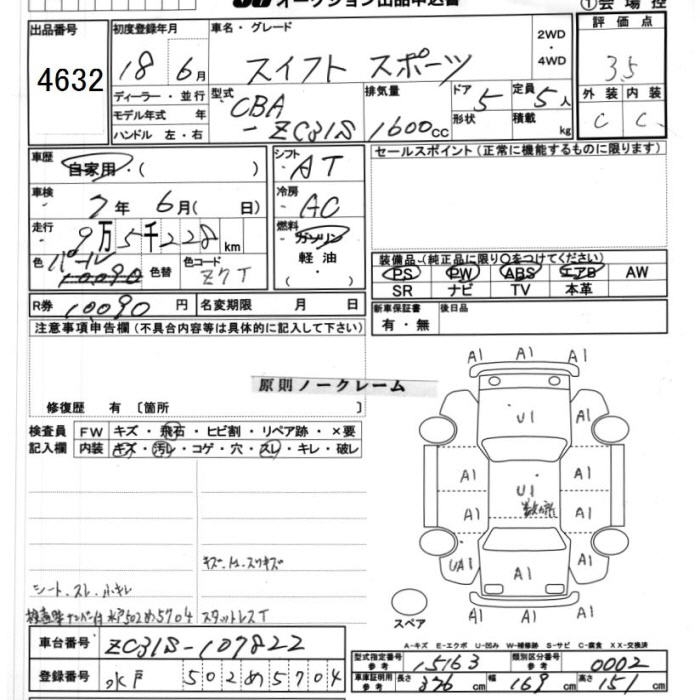 オークション出品申込書
① 会場控
出品番号
4632
初度登録年月
18 6月
車名・グレード
スイフト スポーツ
2WD
・
4WD
評価点
3.5
外装 内装
C C
ディーラー・並行
モデル年式 年
ハンドル 左・右
型式
CBA
- ZC31S
排気量
1600cc
ドア 5
形状
定員 5人
積載 kg
車歴
自家用・( )
車検
7年 6月( 日)
走行
9万5千228km
色 パール
10090
色替
色コード
Z7T
R券 10090 円 名変期限 月 日
シフト
AT
冷房
AC
燃料
ガソリン
軽油
( )
セールスポイント(正常に機能するものに限ります)
装備品-(純正品に限り○をつけてください)
PS PW ABS エアB AW
SR ナビ TV 本革
新車保証書
有・無
後日品
注意事項申告欄(不具合内容等は具体的に記入して下さい)
原則ノークレーム
修復歴 有 〔箇所 〕
検査員
記入欄
FW キズ・飛石・ヒビ割・リペア跡・×要
内装 キズ・汚レ・コゲ・穴・スレ・キレ・破レ
シート・スレ・小キレ
水戸502め5704
スタットレスT
車台番号 ZC31S-107822
登録番号 水戸 502め5704
A1 A1 A1
U1
A1 A1
A1 U1 A1
A1 A1
UA1 A1 A1
A1 A1 A1
スペア
A-キズ E-エクボ U-凹み W-補修跡 S-サビ C-腐食 XX-交換済
型式指定番号
参考
15163
類別区分番号
参考
0002
車庫証明用
参考
長さ 376cm 幅 169cm 高さ 151cm